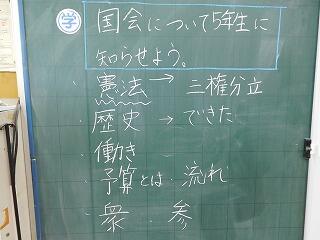 学 国会について5年生に
知らせよう。
・憲法→三権分立
・歴史→できた
・働き
・予算とは・流れ
・衆・参